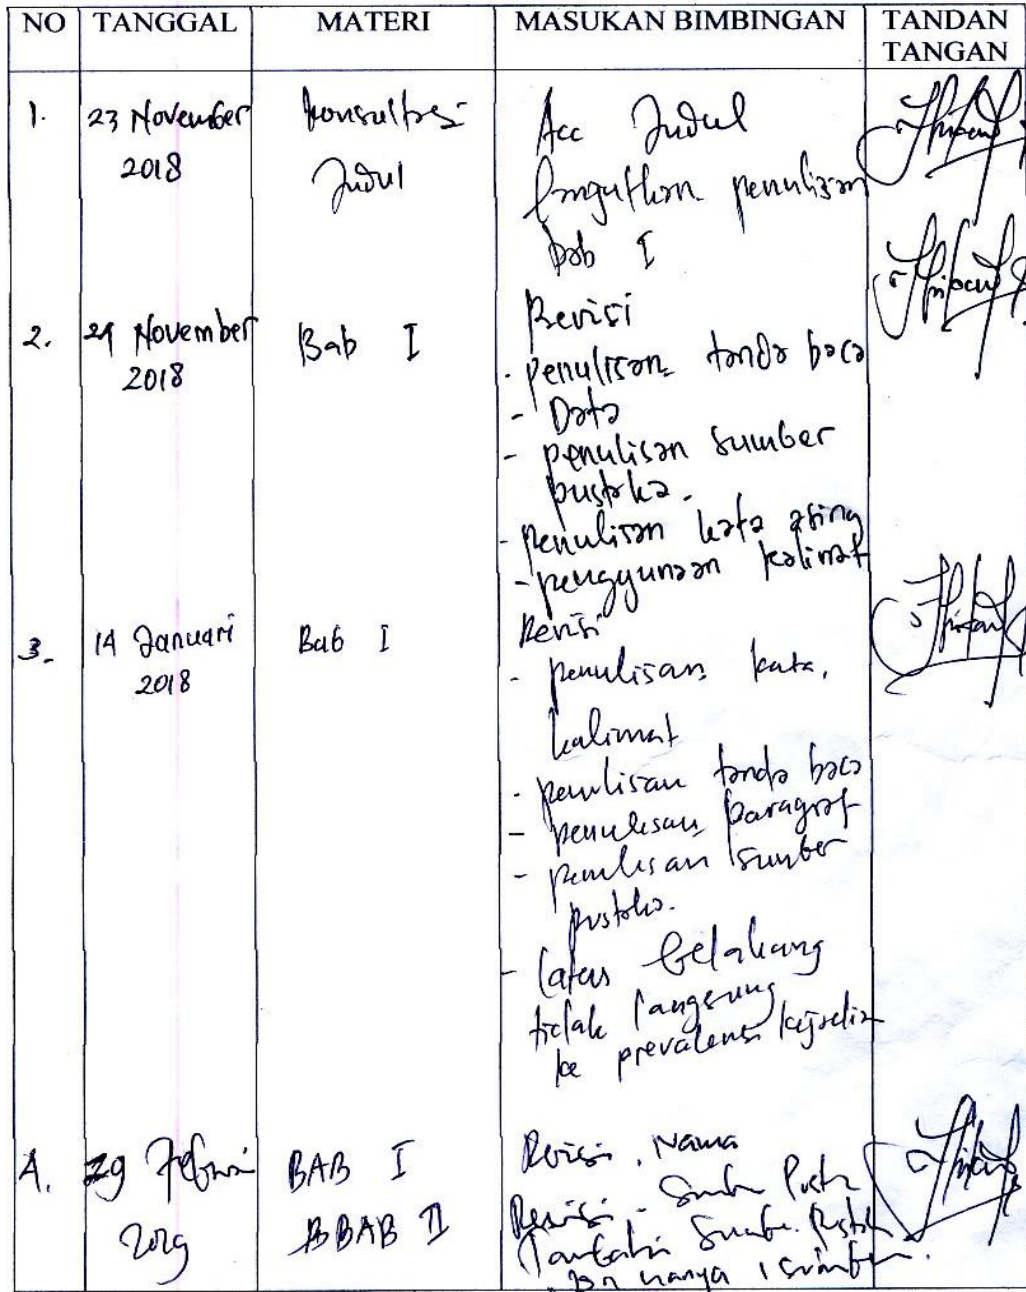 NO TANGGAL MATERI MASUKAN BIMBINGAN TANDAN TANGAN
1. 23 November 2018
Konsultasi
Judul
Acc Judul
Langutkan penulisan
bab I
2. 29 November
2018
Bab I
Revisi
- penulisan tanda baca
- Data
- penulisan sumber
pustaka.
- penulisan kata asing
- penggunaan kalimat
3. 14 Januari
2018
Bab I
Revisi
- penulisan kata,
kalimat
- penulisan tanda baca
- penulisan paragraf
- penulisan sumber
pustaka.
- Latar belakang
tidak langsung
ke prevalensi kejadian
4.
BAB I
BBAB II
Revisi, Nama
Revisi - Pustaka
hanya 1 sumber.